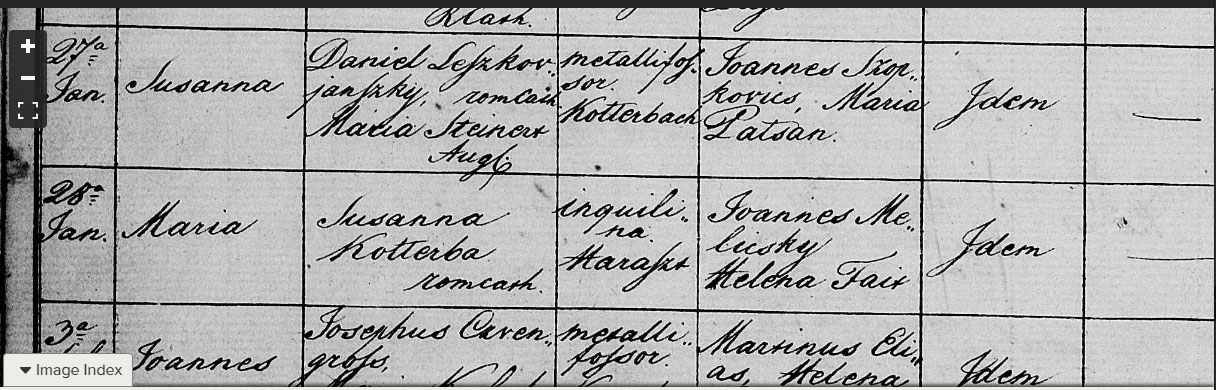 R.Cath.
27ª Jan. Susanna Daniel Leſzkov-
janſzky, romcath.
Maria Steinert
Augſ.
metallifos-
sor.
Kotterbach
Joannes Szop-
kovics, Maria
Patsan.
Idem
28ª Jan. Maria Susanna
Kotterba
romcath.
inquili-
na.
Haraſzt
Joannes Me-
lusky
Helena Fait
Idem
3ª
Joannes
Josephus Czven-
groſs,
metalli-
fossor.
Martinus Eli-
as, Helena
Idem
Image Index